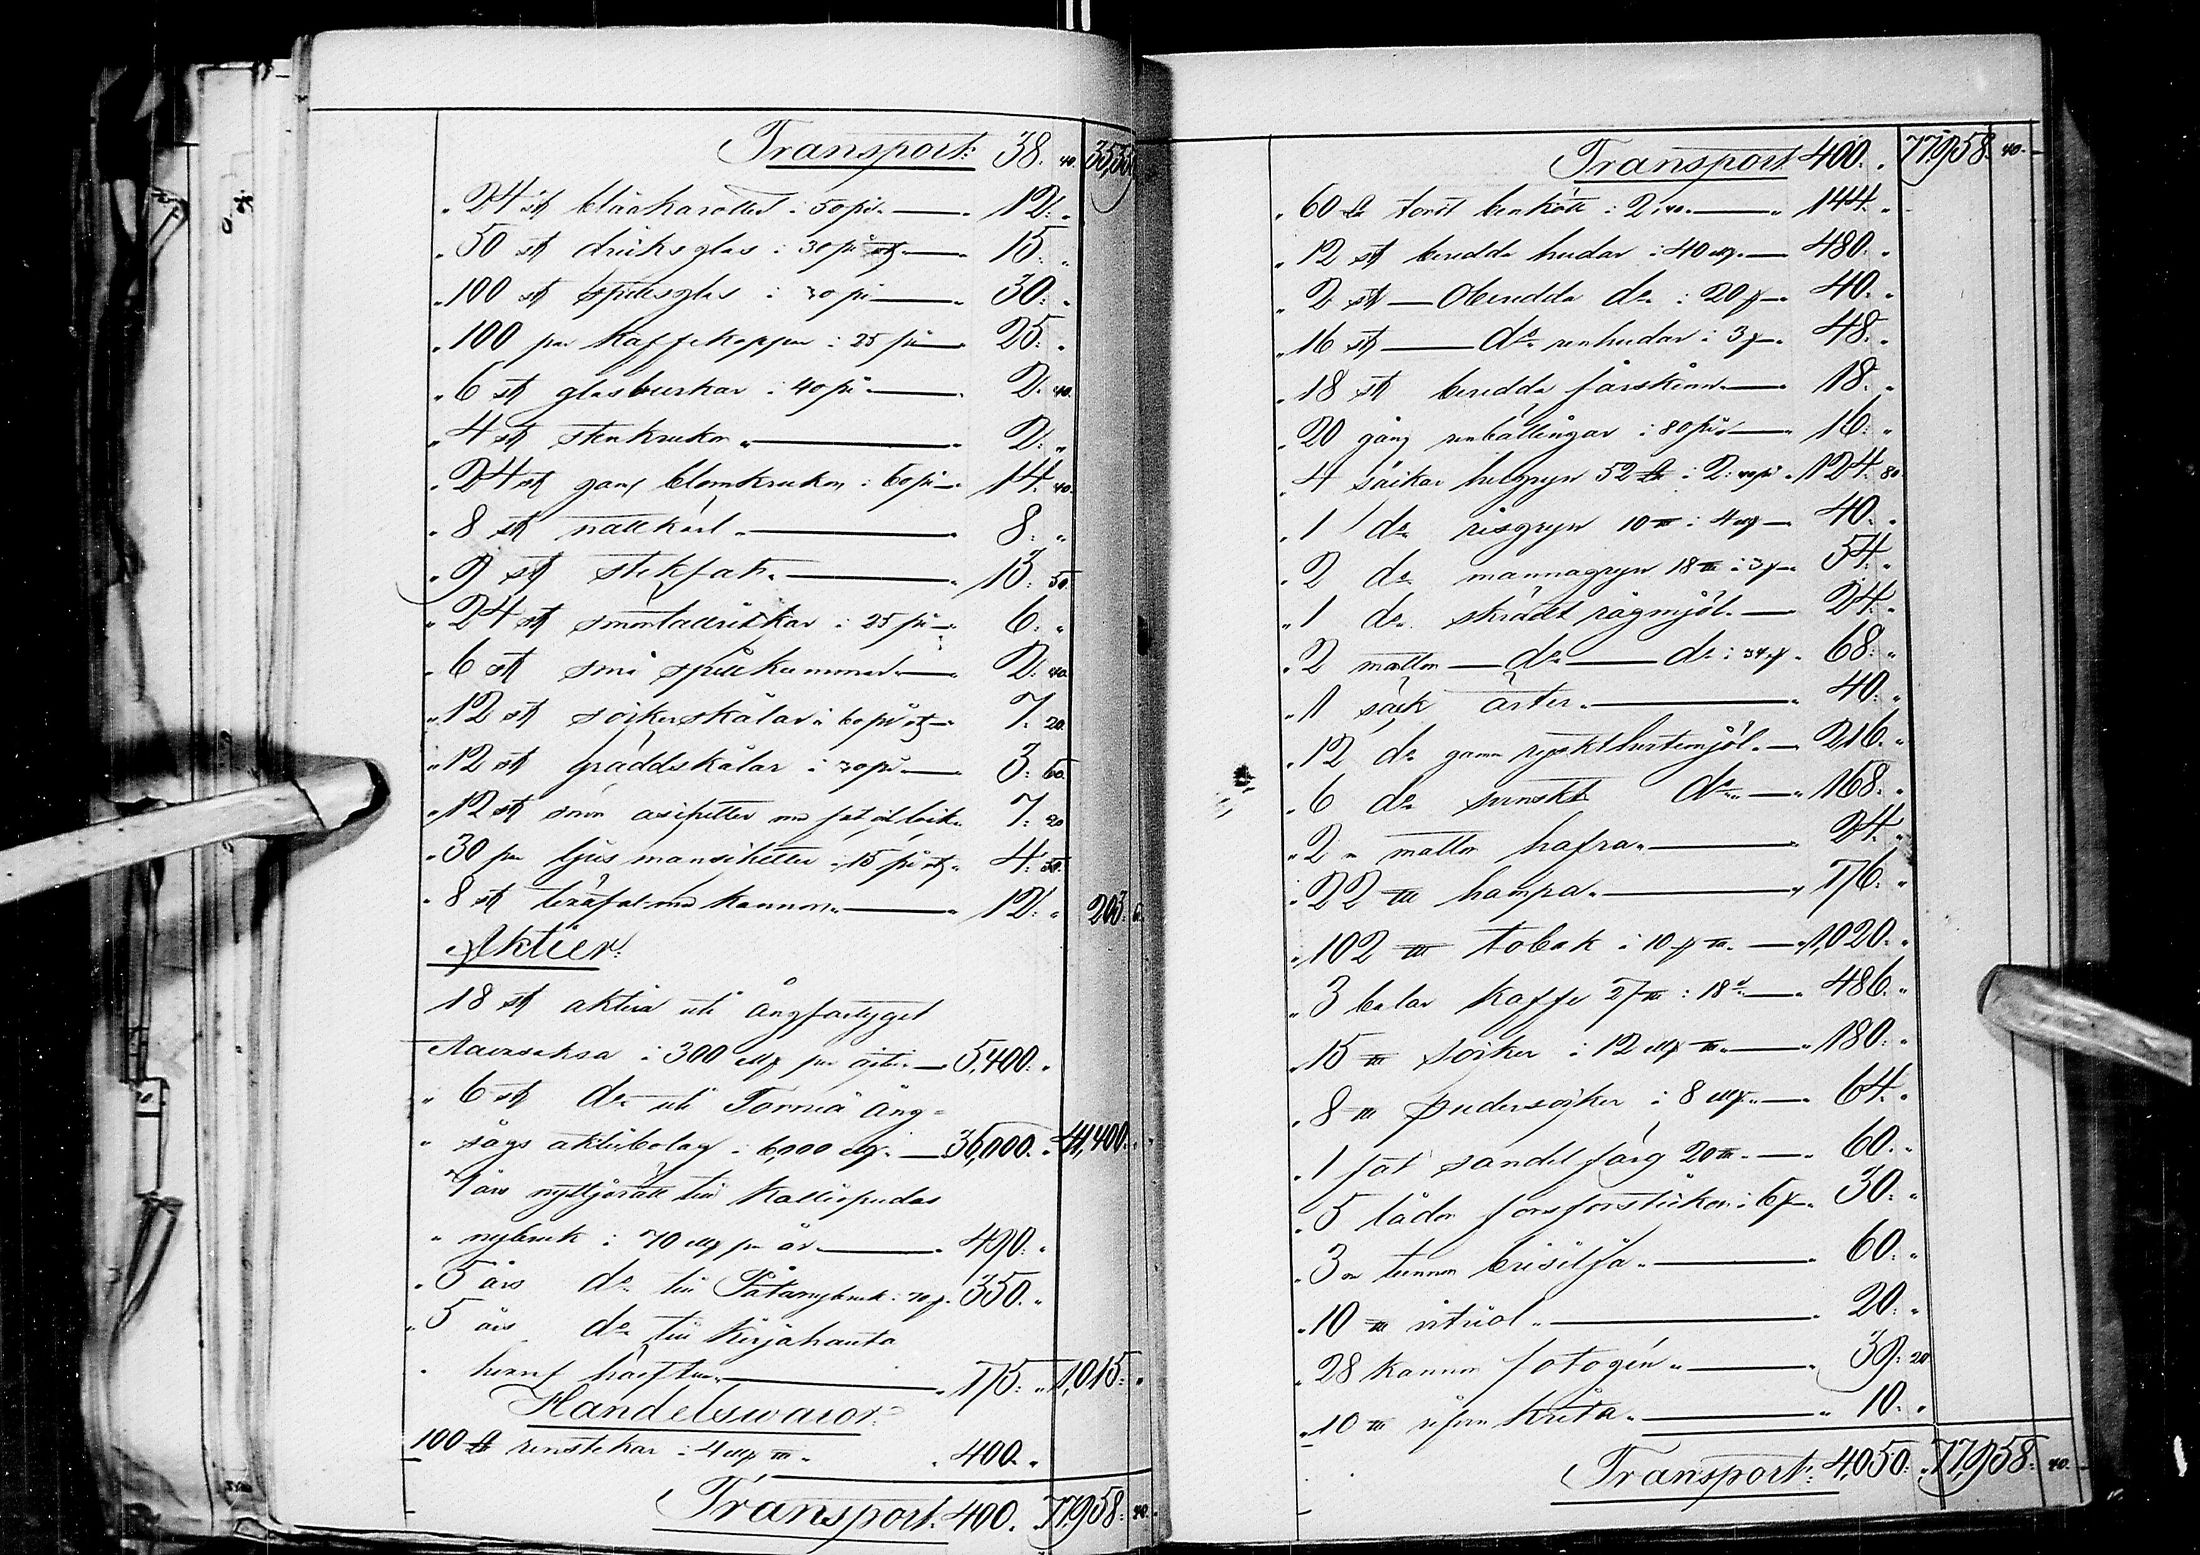 Transport: 38. 40. 35,3
" 24 st blåa karotter i 50 pi. — 12. "
" 50 st driksglas i 30 pi st — 15. "
" 100 st spetsglas i 30 pi — 30. "
" 100 par kaffekoppar i 25 pi — 25. "
" 6 st glasburkar i 40 pi — 2. 40.
" 4 st stenkrukor " — 2. "
" 24 st gamf blomkrukor i 60 pi — 14. 40.
" 8 st nattkärl " — 8. "
" 9 st stekfat — 13. 50.
" 24 st småtallrikar i 25 pi — 6. "
" 6 st små spillkummar — 2. 40.
" 12 st sockerskålar i 60 pi st — 7. 20.
" 12 st gräddskålar i 30 pi — 3. 60.
" 12 st små asietter 7. 20
" 30 par ljus manschetter i 15 pi st " 4. 50.
" 8 st kannor — 12. " 203. 6
Aktier:
18 st aktier uti ångfartyget
i 300 mk per — 5,400. "
" 6 st do uti Torneå ång=
" sågs aktiebolag i 6,000 mk — 36,000. " 41,400. "
7 års nyttjorätt till Kalliopudas
" nybruk i 70 mk per år — 490. "
" 5 års do till nybruk i 70 350. "
" 5 års do till Kirjahauta
" — 175. " 1,015. "
Handelswaror:
100 ℔ renstekar i 4 mk " " 400. "
Transport. 400. 77,958. 40.
Transport 400. " 77,958. 40.
" 60 ℔ torrt benkött i 2,40. — 144. "
" 12 st beredda hudar i 40 mk — 480. "
" 2 st — Oberedda do i 20 — 40. "
" 16 st — do renhudar i 3 — 48. "
" 18 st beredda fårskinn — 18. "
" 20 gång renbällingar i 80 pi — 16. "
" 4 säckar helgryn 52 ℔ i 2: 40 pi " 124. 80.
" 1 do risgryn 10 i 4 mk — 40. "
" 2 do mannagryn 18 i 3 — 54. "
" 1 do skrädt rågmjöl — 24. "
" 2 mattor — do — do i 34 " 68. "
" 1 säck ärter — 40. "
" 12 do gamm ryskt hvetemjöl — 216. "
" 6 do svenskt do — 168. "
" 2 " mattor hafra — 24. "
" 22 hampa — 176. "
" 102 tobak i 10 — 1,020. "
" 3 balar kaffe 27 i 18 — 486. "
" 15 socker i 12 mk — 180. "
" 8 pudersocker i 8 mk — 64. "
" 1 fat sandel färg 20 — 60. "
" 5 lådor forsforstickor i 6 — 30. "
" 3 tunnor brisilja — 60. "
" 10 vitriol — 20. "
" 28 kannor fotogén — 39. 20
" 10 krita — 10. "
Transport: 4,050. " 77,958. 40.